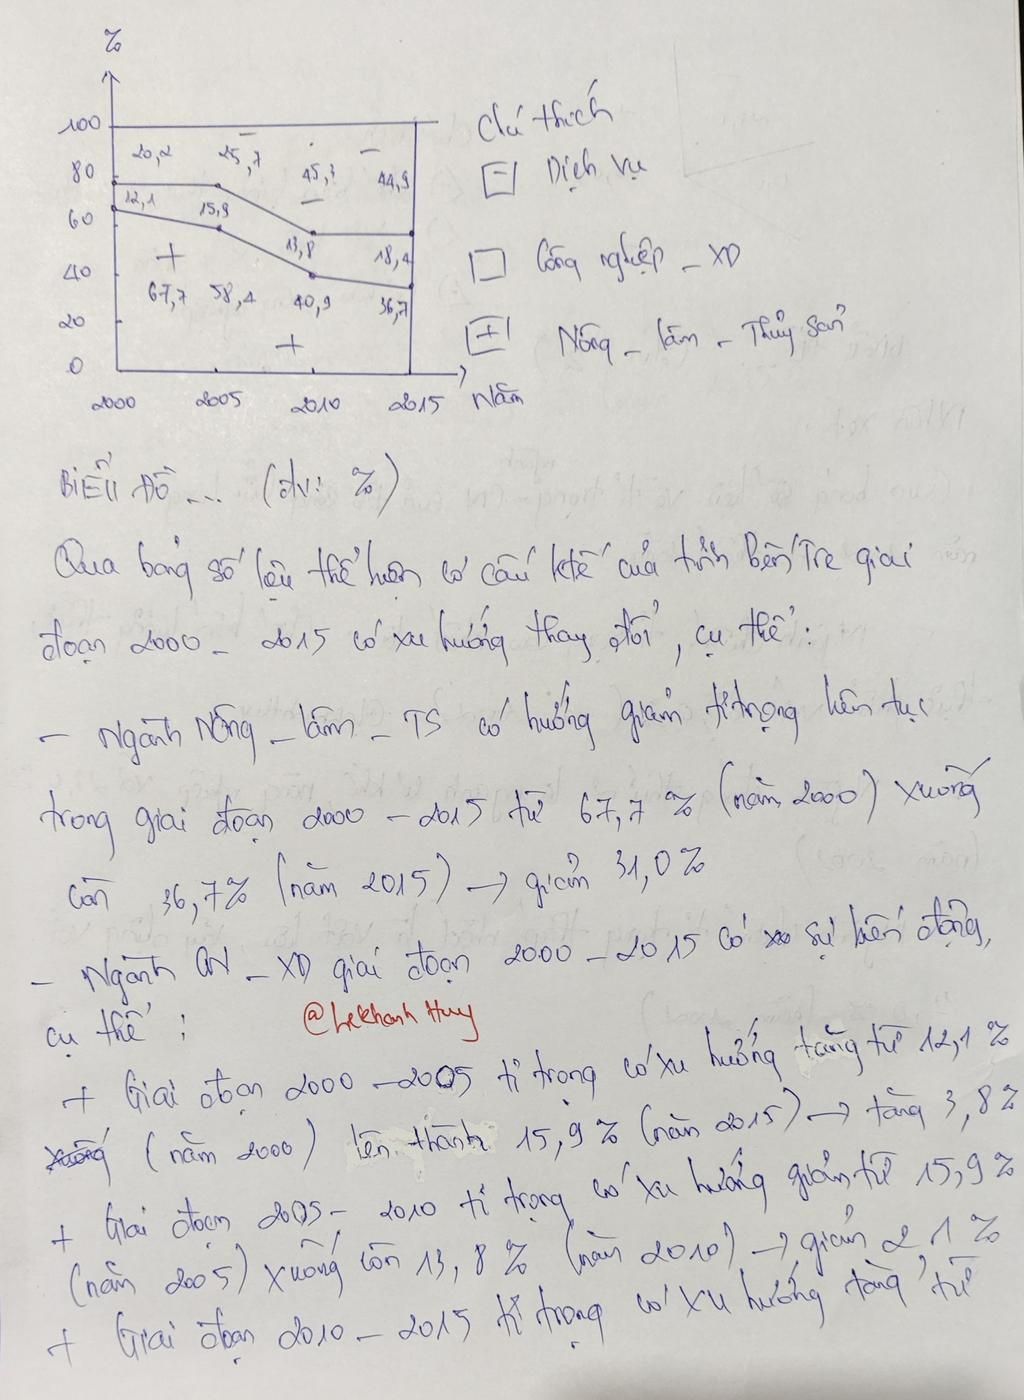 %
100
80
60
40
20
0
20,2 25,7 45,3 44,9
12,1 15,9 13,8 18,4
67,7 58,4 40,9 36,7
2000 2005 2010 2015 Năm
Chú thích
Dịch vụ
Công nghiệp - XD
Nông - lâm - Thủy sản
BIỂU ĐỒ ... (đv: %)
Qua bảng số liệu thể hiện cơ cấu ktế của tỉnh Bến Tre giai
đoạn 2000 - 2015 có xu hướng thay đổi, cụ thể:
- Ngành Nông - lâm - TS có hướng giảm tỉ trọng liên tục
trong giai đoạn 2000 - 2015 từ 67,7 % (năm 2000) xuống
còn 36,7% (năm 2015) → giảm 31,0%
- Ngành CN - XD giai đoạn 2000 - 2015 có sự biến động,
cụ thể:
@LeKhanhHuy
+ Giai đoạn 2000 - 2005 tỉ trọng có xu hướng tăng từ 12,1 %
xuống (năm 2000) lên thành 15,9 % (năm 2015) → tăng 3,8%
+ Giai đoạn 2005 - 2010 tỉ trọng có xu hướng giảm từ 15,9 %
(năm 2005) xuống còn 13,8 % (năm 2010) → giảm 2 1 %
+ Giai đoạn 2010 - 2015 tỉ trọng có xu hướng tăng từ